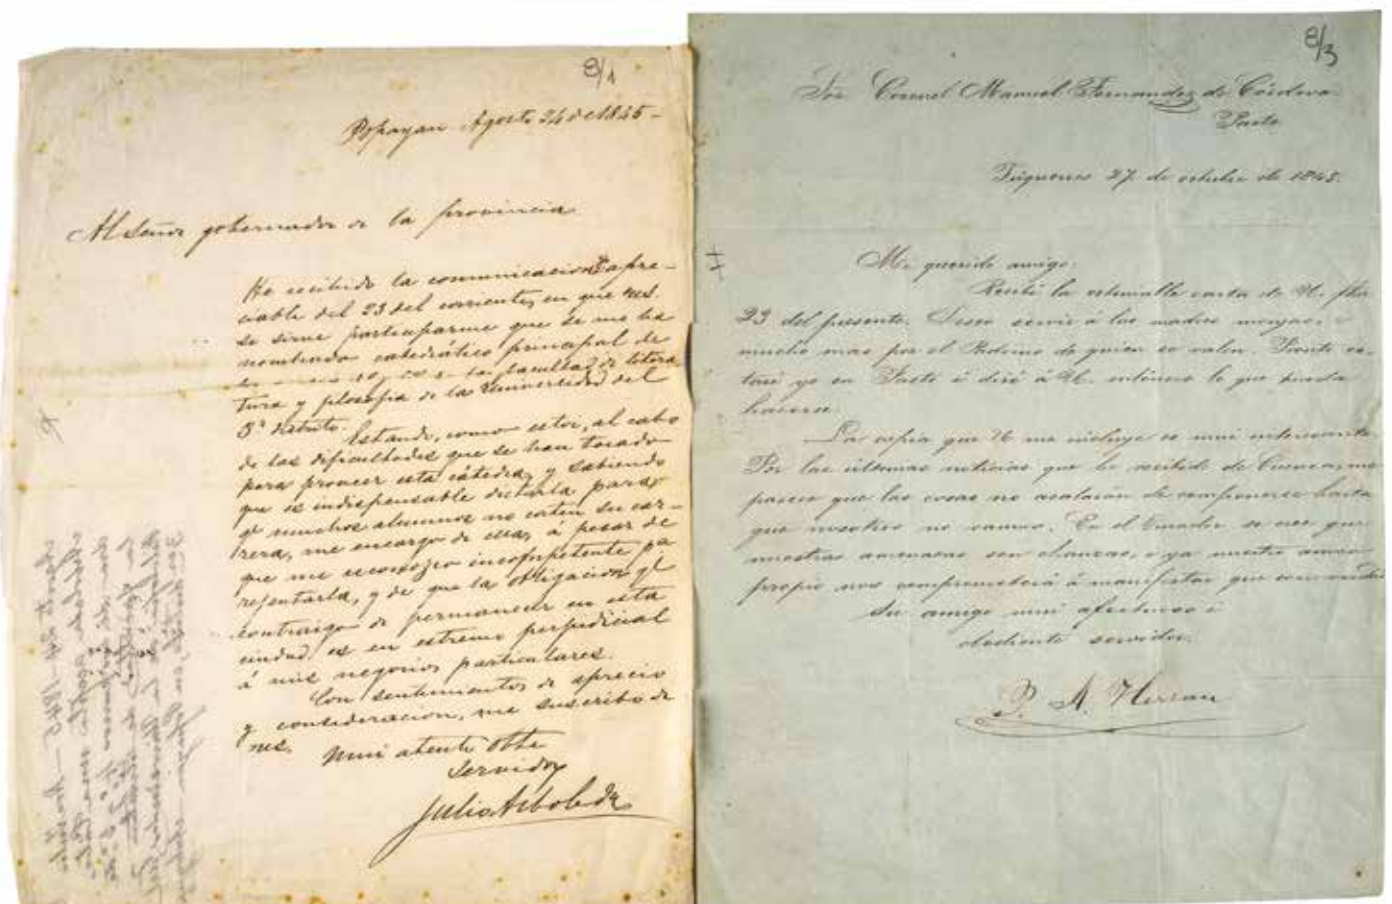 8/1
Popayan Agosto 24 de 1845-
Al Señor gobernador de la provincia
He recibido la comunicacion apre-
ciable del 23 del corriente, en que
se sirve participarme que se me ha
nombrado catedrático principal de
la facultad de litera
tura y filosofia de la Universidad del
3er distrito.
Estando, como estoi, al cabo
de las dificultades que se han tocado
para proveer esta cátedra, y sabiendo
que es indispensable dictarla para
qe muchos alumnos no corten su car-
rera, me encargo de ella, á pesar de
que me reconozco incompetente pa
rejentarla, y de que la obligacion qe
contraigo de permanecer en esta
ciudad, es en estremo perjudicial
á mis negocios particulares.
Con sentimientos de aprecio
y consideracion, me suscribo de
Mui atento Obte
Servidor
Julio Arboleda
8/3
Sor. Coronel Manuel Fernandez de Córdova
Pasto
Túquerres 27 de octubre de 1845.
Mi querido amigo:
Recibí la estimable carta de U. fha
23 del presente. Deseo servir á las madres monjas, i
mucho mas por el de quien se valen. Pronto es-
taré yo en Pasto i diré á U. entónces lo que pueda
hacerse.
La copia que U me incluye es mui interesante.
Por las últimas noticias que he recibido de Cuenca, me
parece que las cosas no acabarán de componerse hasta
que nosotros no vamos. En el Ecuador se cree que
nuestras amenazas son chanzas, i ya nuestro amor
propio nos comprometerá á manifestar que
Su amigo mui afectuoso i
obediente servidor.
P. A. Herran